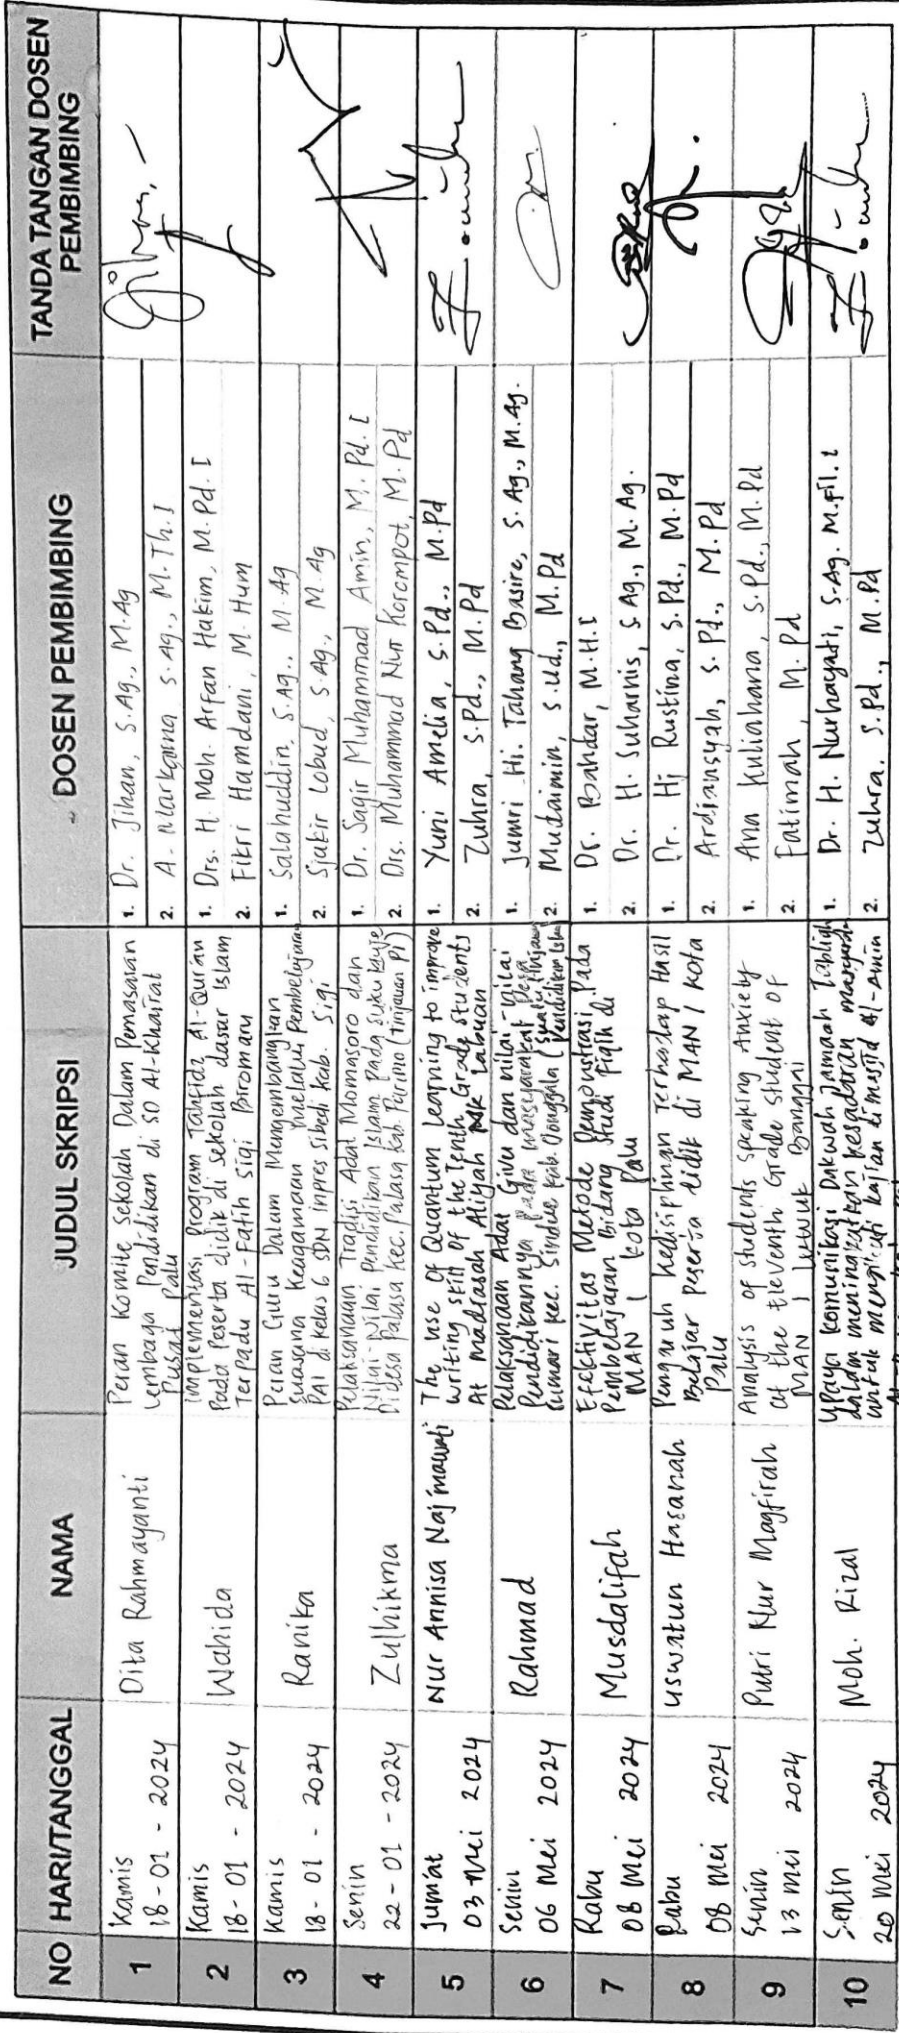 NO HARI/TANGGAL NAMA JUDUL SKRIPSI DOSEN PEMBIMBING TANDA TANGAN DOSEN PEMBIMBING
1
Kamis
18 - 01 - 2024
Dita Rahmayanti
Peran Komite Sekolah Dalam Pemasaran
Lembaga Pendidikan di SD Al-Khairat
Pusat Palu
1. Dr. Jihan, S.Ag., M.Ag
2. A. Markarma, S.Ag., M.Th.I
2
Kamis
18 - 01 - 2024
Wahida
Implementasi Program Tahfidz Al-Qur'an
Pada Peserta didik di sekolah dasar Islam
Terpadu Al-Fatih Sigi Biromaru
1. Drs. H. Moh. Arfan Hakim, M.Pd.I
2. Fikri Hamdani, M.Hum
3
Kamis
18 - 01 - 2024
Ranika
Peran Guru Dalam Mengembangkan
Suasana Keagamaan melalui Pembelajaran
PAI di kelas 6 SDN Inpres Sibedi Kab. Sigi
1. Salahuddin, S.Ag., M.Ag
2. Sjakir Lobud, S.Ag., M.Ag
4
Senin
22 - 01 - 2024
Zulhikma
Pelaksanaan Tradisi Adat Momasoro dan
Nilai-Nilai Pendidikan Islam Pada Suku
Didesa Palasa Kec. Palasa Kab. Parimo (Tinjauan PI)
1. Dr. Sagir Muhammad Amin, M.Pd.I
2. Drs. Muhammad Nur Korompot, M.Pd
5
Jum'at
03 Mei 2024
Nur Annisa Najmawati
The use of Quantum Learning to improve
writing skill of the Tenth Grade students
At Madrasah Aliyah Labuan
1. Yuni Amelia, S.Pd., M.Pd
2. Zuhra, S.Pd., M.Pd
6
Senin
06 Mei 2024
Rahmad
Pelaksanaan Adat Givu dan nilai-nilai
Pendidikannya pada masyarakat Desa
Sumari Kec. Sindue Kab. Donggala (Suatu Tinjauan
Pendidikan Islam)
1. Jumri Hi. Tahang Basire, S.Ag., M.Ag.
2. Mudaimin, S.Ud., M.Pd
7
Rabu
08 Mei 2024
Musdalifah
Efektivitas Metode Demonstrasi Pada
Pembelajaran Bidang Studi Fiqih di
MAN 1 Kota Palu
1. Dr. Bahdar, M.H.I
2. Dr. H. Suharnis, S.Ag., M.Ag.
8
Rabu
08 Mei 2024
Uswatun Hasanah
Pengaruh Kedisiplinan Terhadap Hasil
Belajar peserta didik di MAN 1 Kota
Palu
1. Dr. Hj Rustina, S.Pd., M.Pd
2. Ardiansyah, S.Pd., M.Pd
9
Senin
13 Mei 2024
Putri Nur Magfirah
Analysis of students speaking Anxiety
at the eleventh Grade student of
MAN 1 Luwuk Banggai
1. Ana Kuliahana, S.Pd., M.Pd
2. Fatimah, M.Pd
10
Senin
20 Mei 2024
Moh. Rizal
Upaya Komunikasi Dakwah Jamaah Tabligh
dalam meningkatkan kesadaran
untuk mengikuti kajian di masjid Al-Amin
1. Dr. H. Nurhayati, S.Ag. M.Fil.I
2. Zuhra. S.Pd., M.Pd